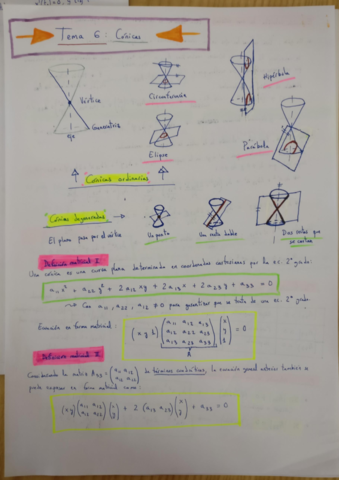 Tema 6: Cónicas
Vértice
Generatriz
eje
Circunferencia
Elipse
Hipérbola
Parábola
Cónicas ordinarias
Cónicas degeneradas →
El plano pasa por el vértice
Un punto
Una recta doble
Dos rectas que se cortan
Definición matricial I:
Una cónica es una curva plana determinada en coordenadas cartesianas por la ec. 2º grado:
a₁₁x² + a₂₂y² + 2a₁₂xy + 2a₁₃x + 2a₂₃y + a₃₃ = 0
→ Con a₁₁, a₂₂, a₁₂ ≠ 0 para garantizar que se trata de una ec. 2º grado.
Ecuación en forma matricial:
(x y 1) (a₁₁ a₁₂ a₁₃ / a₁₂ a₂₂ a₂₃ / a₁₃ a₂₃ a₃₃) (x / y / 1) = 0
A
Definición matricial II:
Considerando la matriz A₃₃ = (a₁₁ a₁₂ / a₁₂ a₂₂) de términos cuadráticos, la ecuación general anterior también se
puede expresar en forma matricial como:
(x y) (a₁₁ a₁₂ / a₁₂ a₂₂) (x / y) + 2 (a₁₃ a₂₃) (x / y) + a₃₃ = 0